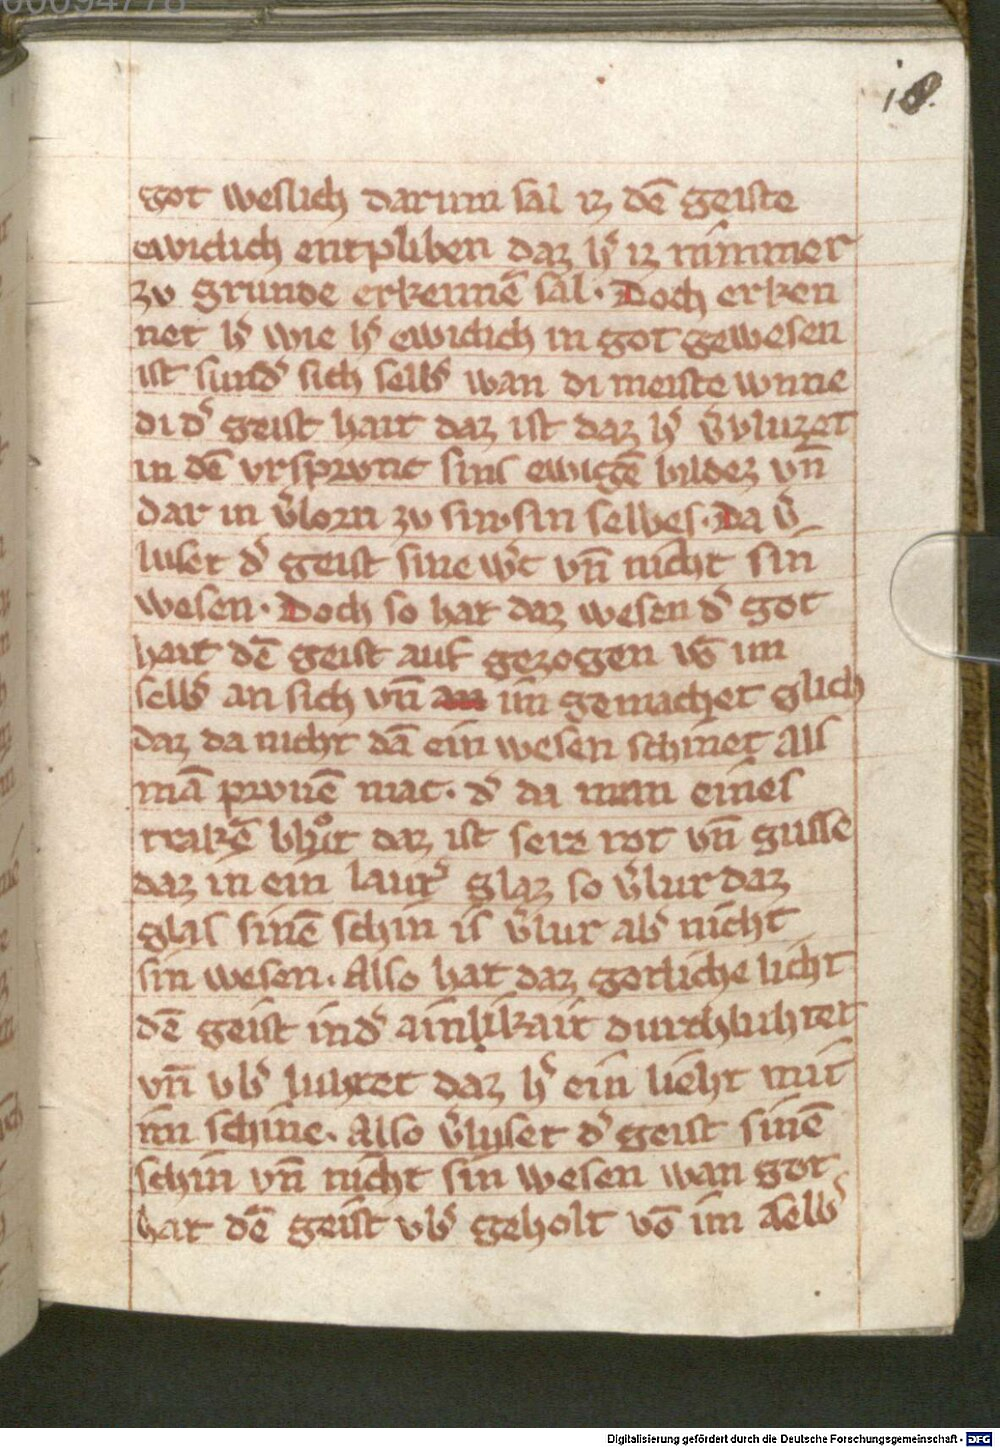 got weslich darum sal iz dē geiste
ewiclich entpliben daz h᷒ iz nimmer
zv grunde erkennē sal. Doch erken
net h᷒ wie h᷒ ewiclich in got gewesen
ist sund᷒ sich selb᷒ wan di meiste wnne
di d᷒ geist hait daz ist daz h᷒ v᷒vluzet
in dē vrsprvnc sins ewigē bildez vn̄
dar in v᷒lorn zv sin sin selbes. Da v᷒
luset d᷒ geist sine w᷒c vn̄ nicht sin
wesen. Doch so hat daz wesen d᷒ got
hait dē geist auf gezogen vō im
selb᷒ an sich vn̄ im gemachet glich
daz da nicht dā ein wesen schinet als
mā prvuē mac. d᷒ da man eines
trakē daz ist serz rot vn̄ gusse
daz in ein laut᷒ glaz so v᷒lur daz
glas sinē schin is v᷒lur ab᷒ nicht
sin wesen. Also hat daz gotliche licht
dē geist in d᷒ ainlikait durchluhtet
vn̄ vb᷒ luhtet daz h᷒ ein lieht mit
im schine. Also v᷒luset d᷒ geist sinē
schin vn̄ nicht sin wesen wan got
hat dē geist vb᷒ geholt vō im selb᷒
Digitalisierung gefördert durch die Deutsche Forschungsgemeinschaft - DFG